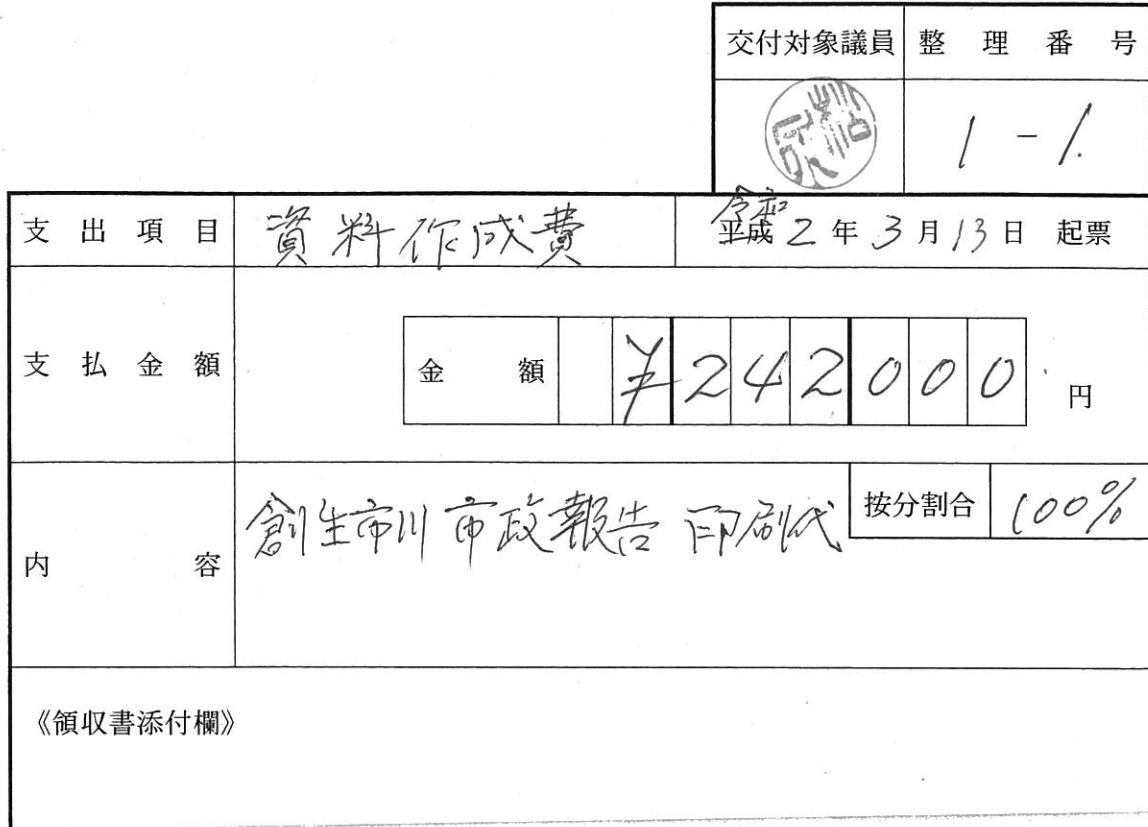 交付対象議員 整理番号
1-1.
支出項目 資料作成費 令和 平成 2年3月13日 起票
支払金額 金額 ¥242000 円
内容 創生市川 市政報告 印刷代 按分割合 100%
《領収書添付欄》